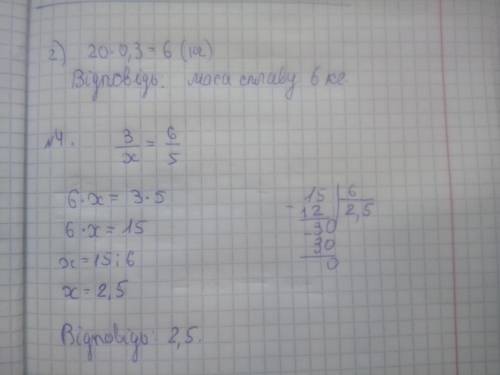 2) 20·0,3=6 (кг)
Відповідь. маса сплаву 6 кг.
№4. 3/x = 6/5
6·x = 3·5
6·x = 15
x = 15:6
x = 2,5
15 | 6
- 12 | 2,5
-30
30
0
Відповідь: 2,5.